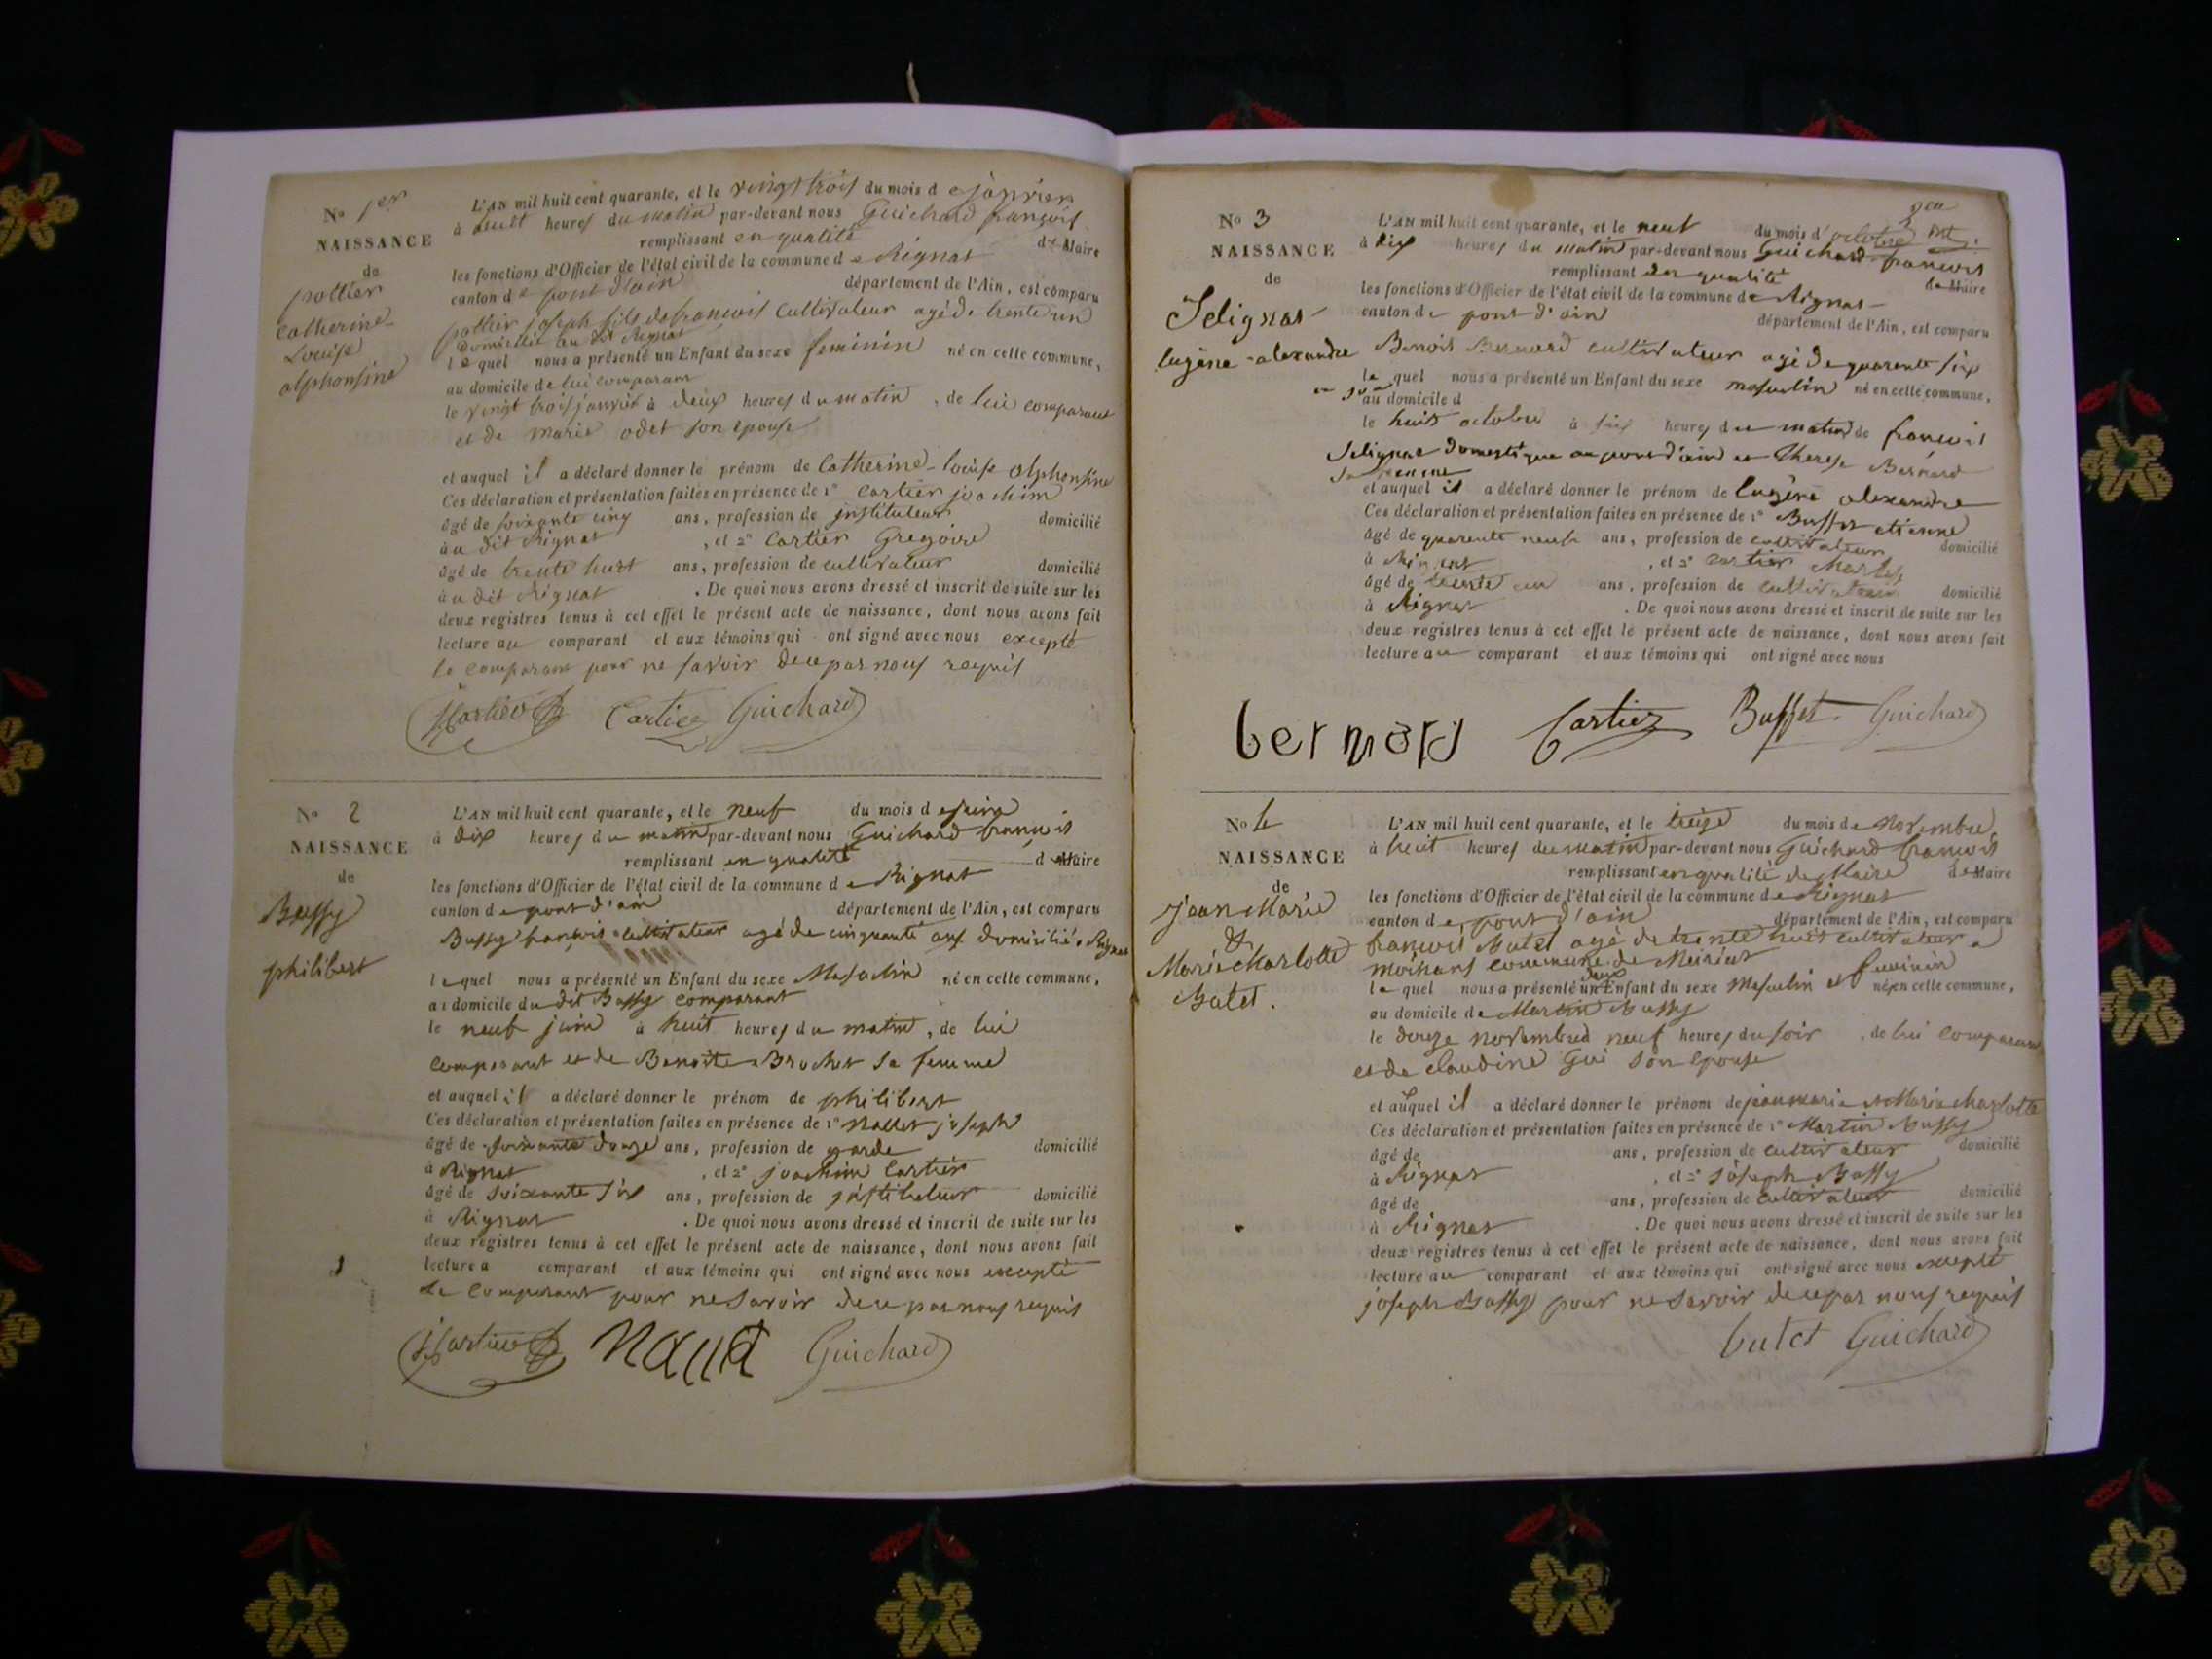 No 1er
NAISSANCE
de
pottier
Catherine-
Louise
alphonsine
L'AN mil huit cent quarante, et le vingt trois du mois de janvier
à huit heures du matin par-devant nous Guichard françois
remplissant en qualité de Maire
les fonctions d'Officier de l'état civil de la commune de Rignat
canton de pont d'ain département de l'Ain, est comparu
pottier joseph fils de françois Cultivateur agé de trente un
domicilié au dit Rignat
lequel nous a présenté un Enfant du sexe feminin né en cette commune,
au domicile de lui comparant
le vingt trois janvier à deux heures du matin, de lui comparant
et de marie odet son epouse
et auquel il a déclaré donner le prénom de Catherine-louise alphonsine
Ces déclaration et présentation faites en présence de 1º Cartier joachim
âgé de soixante cinq ans, profession de instituteur domicilié
à au dit Rignat, et 2º Cartier Gregoire
âgé de trente huit ans, profession de cultivateur domicilié
à au dit Rignat. De quoi nous avons dressé et inscrit de suite sur les
deux registres tenus à cet effet le présent acte de naissance, dont nous avons fait
lecture au comparant et aux témoins qui ont signé avec nous excepté
le comparant pour ne savoir de ce par nous requis
Cartier Guichard
No 2
NAISSANCE
de
Bussy
philibert
L'AN mil huit cent quarante, et le neuf du mois de juin
à dix heures du matin par-devant nous Guichard françois
remplissant en qualité de Maire
les fonctions d'Officier de l'état civil de la commune de Rignat
canton de pont d'ain département de l'Ain, est comparu
Bussy françois cultivateur agé de cinquante ans domicilié a Rignat
lequel nous a présenté un Enfant du sexe Masculin né en cette commune,
au domicile du dit Bussy comparant
le neuf juin à huit heures du matin, de lui
comparant et de Benoite Brochet sa femme
et auquel il a déclaré donner le prénom de philibert
Ces déclaration et présentation faites en présence de 1º joseph
âgé de soixante douze ans, profession de garde domicilié
à Rignat, et 2º joachim Cartier
âgé de soixante six ans, profession de instituteur domicilié
à Rignat. De quoi nous avons dressé et inscrit de suite sur les
deux registres tenus à cet effet le présent acte de naissance, dont nous avons fait
lecture a comparant et aux témoins qui ont signé avec nous excepté
le comparant pour ne savoir de ce par nous requis
Guichard
No 3
NAISSANCE
de
Selignat
Eugène-alexandre
L'AN mil huit cent quarante, et le neuf du mois d'octobre
à dix heures du matin par-devant nous Guichard françois
remplissant en qualité de Maire
les fonctions d'Officier de l'état civil de la commune de Rignat
canton de pont d'ain département de l'Ain, est comparu
Benoit Bernard cultivateur agé de quarente six
lequel nous a présenté un Enfant du sexe masculin né en cette commune,
au domicile d
le huit octobre à six heures du matin de françois
Selignat domestique au pont d'ain et Therese Bernard
sa femme
et auquel il a déclaré donner le prénom de Eugène alexandre
Ces déclaration et présentation faites en présence de 1º Buffet etienne
âgé de quarente neuf ans, profession de cultivateur domicilié
à Rignat, et 2º Cartier
âgé de trente un ans, profession de cultivateur domicilié
à Rignat. De quoi nous avons dressé et inscrit de suite sur les
deux registres tenus à cet effet le présent acte de naissance, dont nous avons fait
lecture au comparant et aux témoins qui ont signé avec nous
bernard Cartier Buffet Guichard
No 4
NAISSANCE
de
jean Marie
&
Marie Charlotte
Butet.
L'AN mil huit cent quarante, et le treize du mois de Novembre,
à huit heures du matin par-devant nous Guichard françois
remplissant en qualité de Maire de Maire
les fonctions d'Officier de l'état civil de la commune de Rignat
canton de pont d'ain département de l'Ain, est comparu
françois Butet agé de trente huit cultivateur a
commune de
lequel nous a présenté un deux Enfant du sexe Masculin et feminin né en cette commune,
au domicile de Martin Bussy
le douze novembre à neuf heures du soir, de lui comparant
et de Claudine Gui son epouse
et auquel il a déclaré donner le prénom de jean marie et Marie charlotte
Ces déclaration et présentation faites en présence de 1º Martin Bussy
âgé de ans, profession de cultivateur domicilié
à Rignat, et 2º joseph Bussy
âgé de ans, profession de cultivateur domicilié
à Rignat. De quoi nous avons dressé et inscrit de suite sur les
deux registres tenus à cet effet le présent acte de naissance, dont nous avons fait
lecture au comparant et aux témoins qui ont signé avec nous excepté
joseph Bussy pour ne savoir de ce par nous requis
butet Guichard